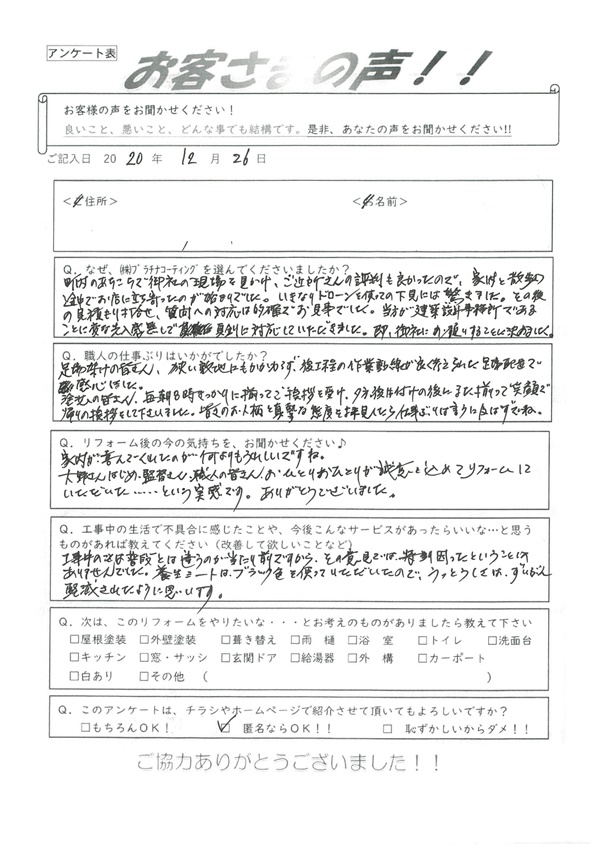 アンケート表
お客さまの声！！
お客様の声をお聞かせください！
良いこと、悪いこと、どんな事でも結構です。是非、あなたの声をお聞かせください!!
ご記入日 2020年 12月 26日
＜ご住所＞ ＜お名前＞
Q．なぜ、㈱プラチナコーティングを選んでくださいましたか？
町内のあちこちで御社の現場を見かけ、ご近所さんの評判も良かったので、家内と散歩の
途中でお店に立ち寄ったのが始まりでした。いきなりドローンを使っての下見には驚きました。その後
の見積もり打合せ、質問への対応は的確でお見事でした。当方が建築設計事務所である
ことに変な先入感無しで真剣に対応していただきました。即、御社にお願いすることに決めました。
Q．職人の仕事ぶりはいかがでしたか？
足場架けの皆さん、狭い敷地にもかかわらず、後工程の作業動線が良く考えられた足場配置で
感心しました。
塗装の皆さん、毎朝8時きっかりに揃ってご挨拶を受け、夕方後片付けの後にまた揃って笑顔で
帰りの挨拶をして下さいました。皆さのお人柄と真摯な態度を拝見したら仕事ぶりは言うに及ばずですね。
Q．リフォーム後の今の気持ちを、お聞かせください♪
家内が喜んでくれたのが何よりもうれしいですね。
大野さんはじめ、監督さん、職人の皆さん、お一人とりおひとりが誠意を込めてリフォームして
いただいた……という実感です。ありがとうございました。
Q．工事中の生活で不具合に感じたことや、今後こんなサービスがあったらいいな…と思う
ものがあれば教えてください（改善して欲しいことなど）
工事中の生活は普段とは違うのが当たり前ですから、その意見では、特別困ったということは
ありませんでした。養生シートはブラック色を使っていただいたので、うっとうしさは、ずいぶん
軽減されたように思います。
Q．次は、このリフォームをやりたいな・・・とお考えのものがありましたら教えて下さい
□屋根塗装 □外壁塗装 □葺き替え □雨　樋 □浴　室 □トイレ □洗面台
□キッチン □窓・サッシ □玄関ドア □給湯器 □外　構 □カーポート
□白あり □その他（ ）
Q．このアンケートは、チラシやホームページで紹介させて頂いてもよろしいですか？
□もちろんOK！ ☑ 匿名ならOK！！ □ 恥ずかしいからダメ！！
ご協力ありがとうございました！！